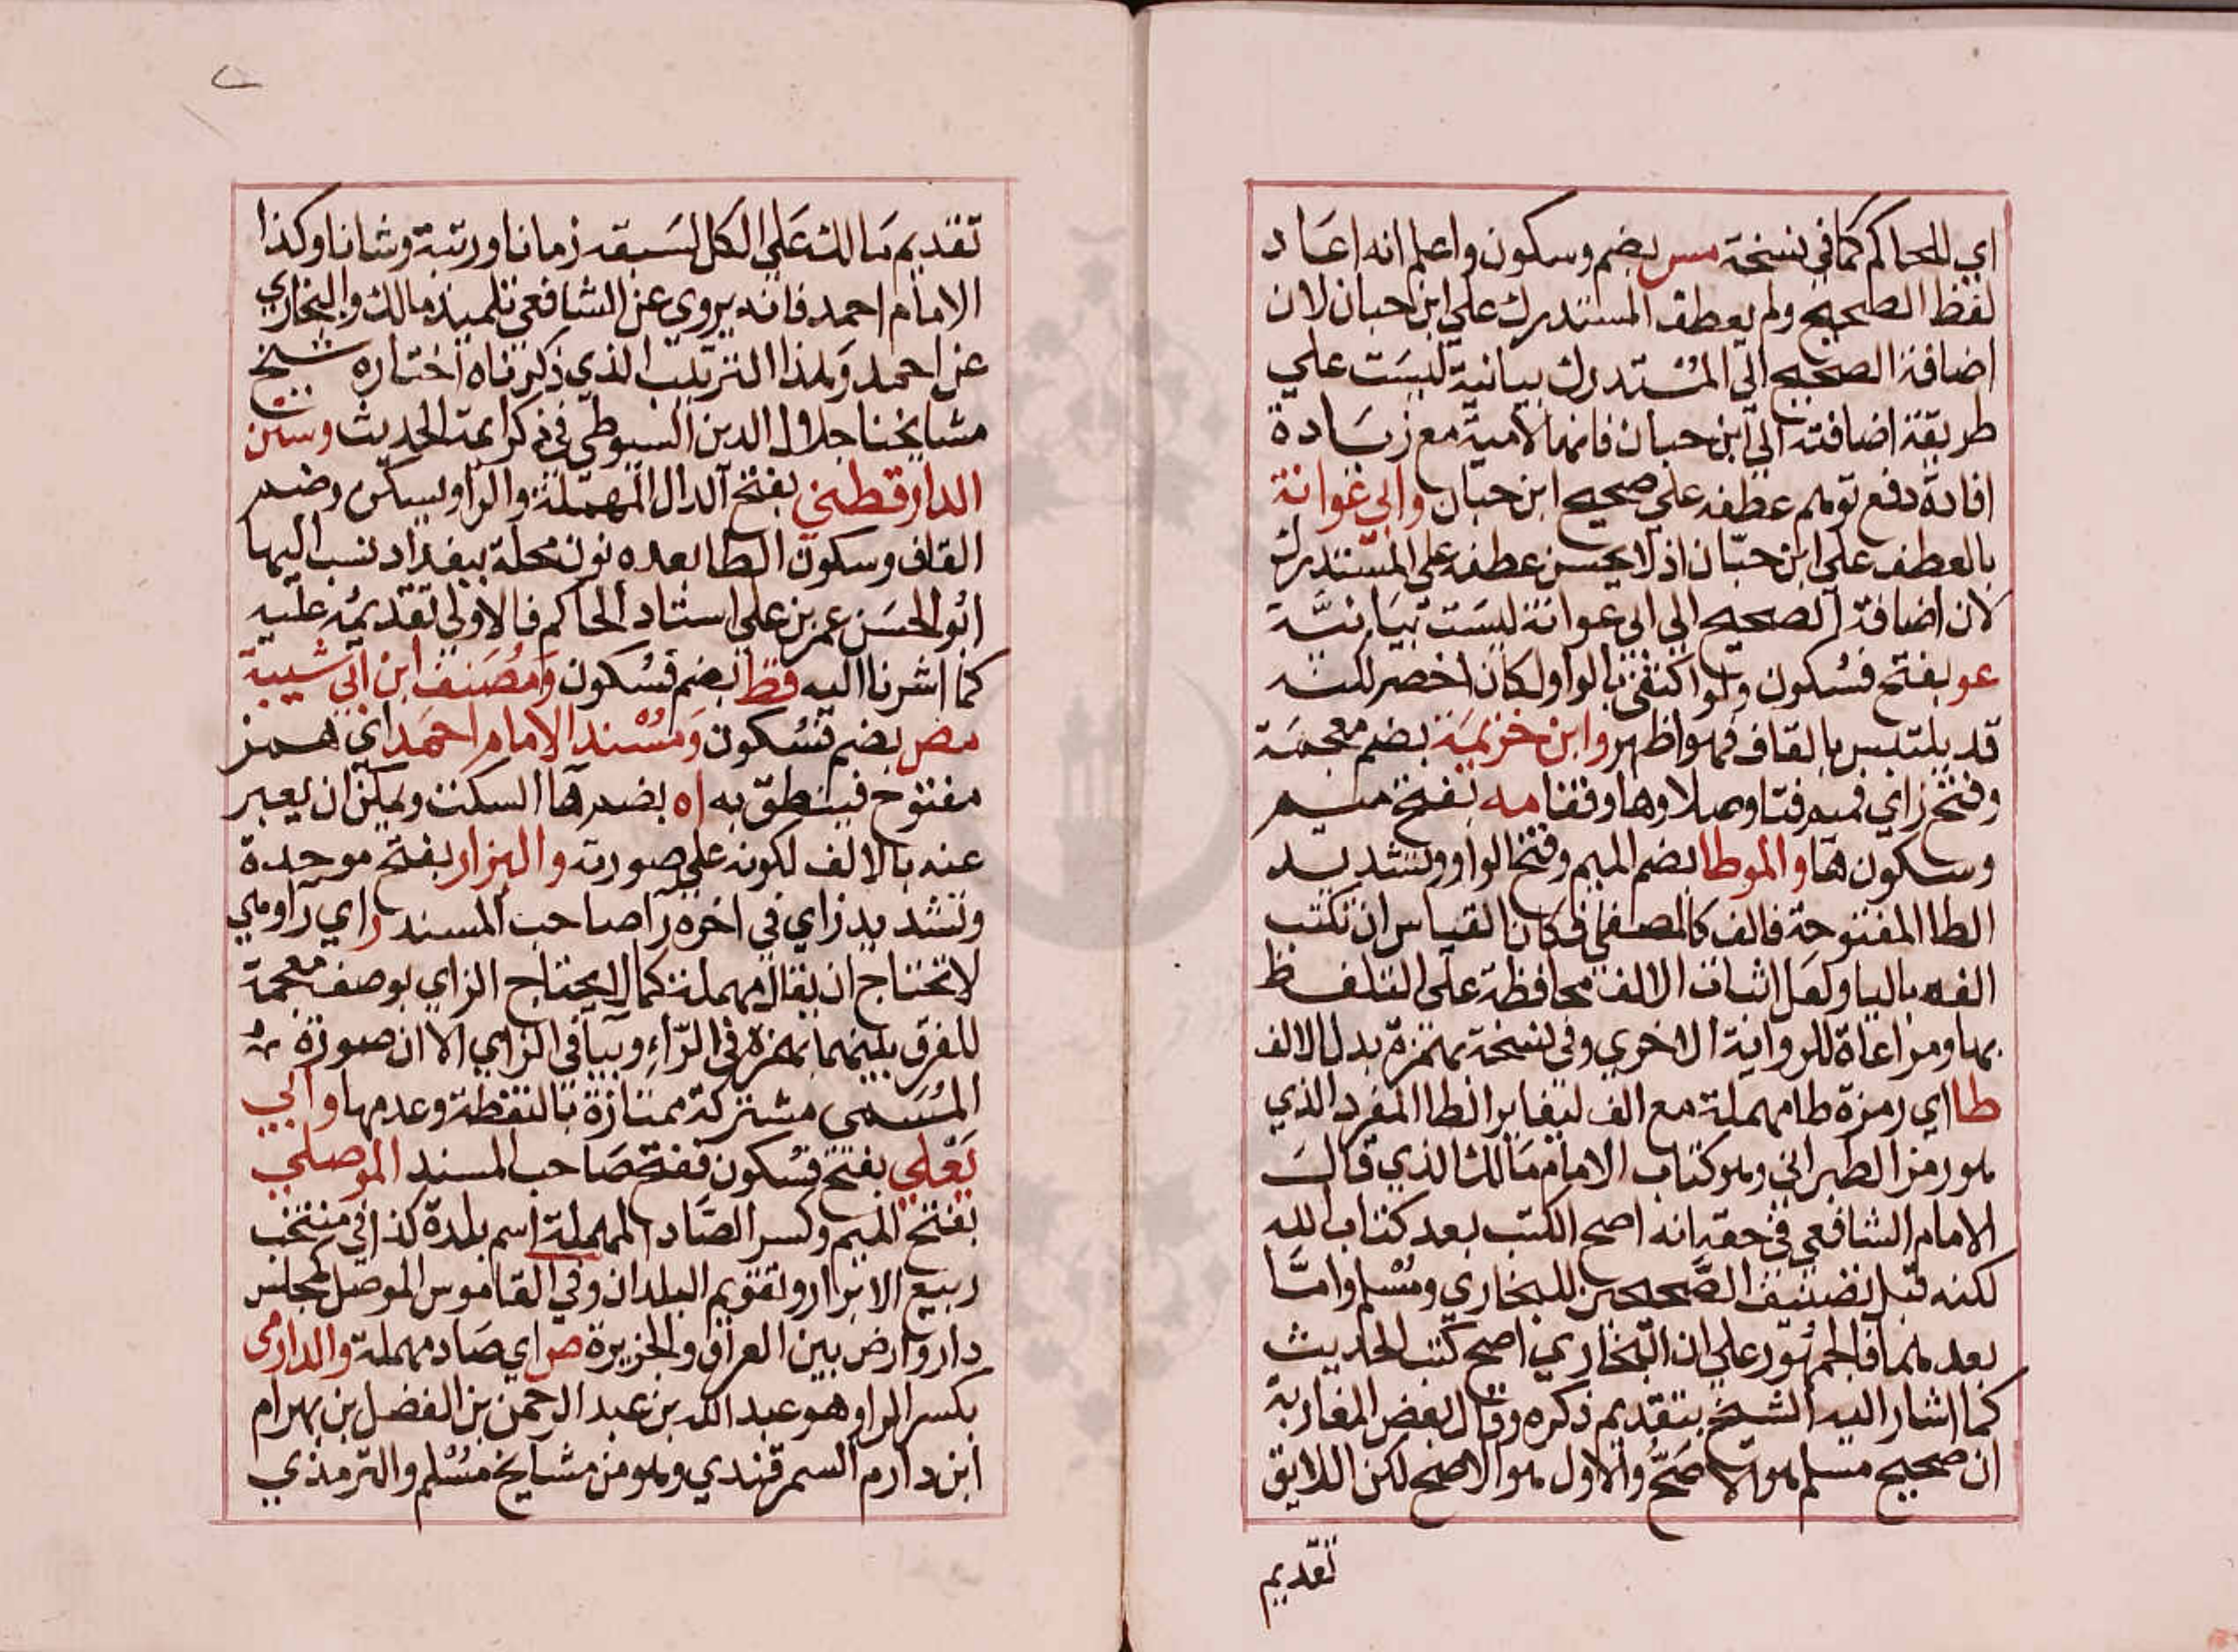 اي للحاكم كما في نسخة مس بضم وسكون واعلم انه اعاد
لفظ الصحيح ولم يعطف المستدرك علي ابن حبان لان
اضافة الصحيح الي المستدرك بيانية ليست علي
طريقة اضافته الي ابن حبان فانها لامية مع زيادة
افادة دفع توهم عطفه علي صحيح ابن حبان وابي عوانة
بالعطف علي ابن حبان اذ لا يحسن عطفه علي المستدرك
لان اضافة الصحيح الي ابي عوانة ليست بيانية
عو بفتح فسكون ولو اكتفي بالواو لكان اخصر لكنه
قد يلتبس بالقاف فهو اظهر وابن خزيمة بضم معجمة
وفتح زاي فميم فتا وصلا وها وقفا مه بفتح ميم
وسكون ها والموطا بضم الميم وفتح الواو وتشديد
الطا المفتوحة فالف كالمصفي فكان القياس ان تكتب
الفه باليا ولعل اثبات الالف محافظة علي التلفظ
بها ومراعاة للرواية الاخري وفي نسخة بهمزة بدل الالف
طا اي رمزه طا مهملة مع الف ليغاير الطا المفرد الذي
هو رمز الطبراني وهو كتاب الامام مالك الذي قال
الامام الشافعي في حقه انه اصح الكتب بعد كتاب الله
لكنه قبل تصنيف الصحيحين للبخاري ومسلم واما
بعدهما فالجمهور علي ان البخاري اصح كتب الحديث
كما اشار اليه الشيخ بتقديم ذكره وقال بعض المغاربة
ان صحيح مسلم هو الاصح والاول هو الاصح لكن اللايق
تقديم
تقديم مالك علي الكل لسبقه زمانا ورتبة وشانا وكذا
الامام احمد فانه يروي عن الشافعي تلميذ مالك والبخاري
عن احمد ولهذا الترتيب الذي ذكرناه اختاره شيخ
مشايخنا جلال الدين السيوطي في ذكر ايمة الحديث وسنن
الدارقطني بفتح الدال المهملة والراو يسكن وضم
القاف وسكون الطا بعده نون محلة ببغداد نسب اليها
ابو الحسن عمر بن علي استاد الحاكم فالاولي تقديمه عليه
كما اشرنا اليه قط بضم فسكون ومصنف ابن ابي شيبة
مص بضم فسكون ومسند الامام احمد اي همز
مفتوح فينطق به اه بضم ها السكت ويمكن ان يعبر
عنه بالالف لكونه علي صورته والبزار بفتح موحدة
وتشديد زاي في اخره را صاحب المسند ر اي را وهي
لا تحتاج ان يقال مهملة كما لا يحتاج الزاي بوصف معجمة
للفرق بينهما بهمزة في الراء وبيا في الزاي الا ان صورة
المسمي مشتركة ممتازة بالنقطة وعدمها وابي
يعلي بفتح فسكون ففتح صاحب المسند الموصلي
بفتح الميم وكسر الصاد المهملة اسم بلدة كذا في منتخب
ربيع الابرار وتقويم البلدان وفي القاموس الموصل كمجلس
دار وارض بين العراق والجزيرة ص اي صاد مهملة والدارمي
بكسر الراو هو عبد الله بن عبد الرحمن بن الفضل بن بهرام
ابن دارم السمرقندي وهو من مشايخ مسلم والترمذي